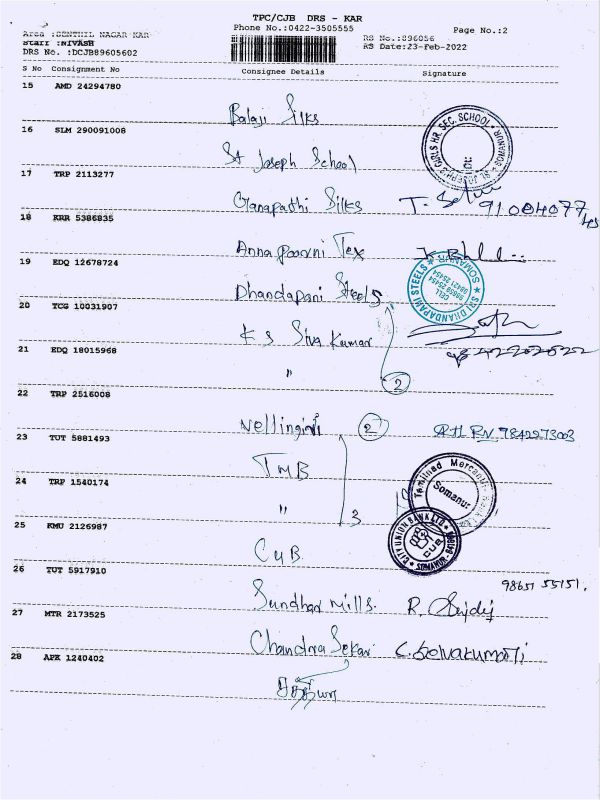 TPC/CJB DRS - KAR
Phone No.:0422-3505555
Page No.:2
Area :SENTHIL NAGAR-KAR
Staff :NIVASH
DRS No. :DCJB89605602
RS No.:896056
RS Date:23-Feb-2022
S No Consignment No Consignee Details Signature
15 AMD 24294780
Balaji Silks
16 SLM 290091008
St Joseph School
GIRLS HR. SEC. SCHOOL
17 TRP 2113277
Ganapathi Silks 91 08407745
18 KRR 5386835
Anna Poorni Tex
19 EDQ 12678724
Dhandapani Steels
SRI DHANDAPANI STEELS
SOMANUR
20 TCG 10031907
K S Siva Kumar
21 EDQ 18015968
" 2
22 TRP 2516008
Nellingiri 2 7842973003
23 TUT 5881493
TMB
Tamilnad Mercantile Bank
Somanur
24 TRP 1540174
" 3
25 KMU 2126987
CUB
CITY UNION BANK LTD.
CUB
SOMANUR
26 TUT 5917910
98651 55151.
Sundhar Mills. R.
27 MTR 2173525
Chandra Sekar C. Selvakumari
28 APK 1240402